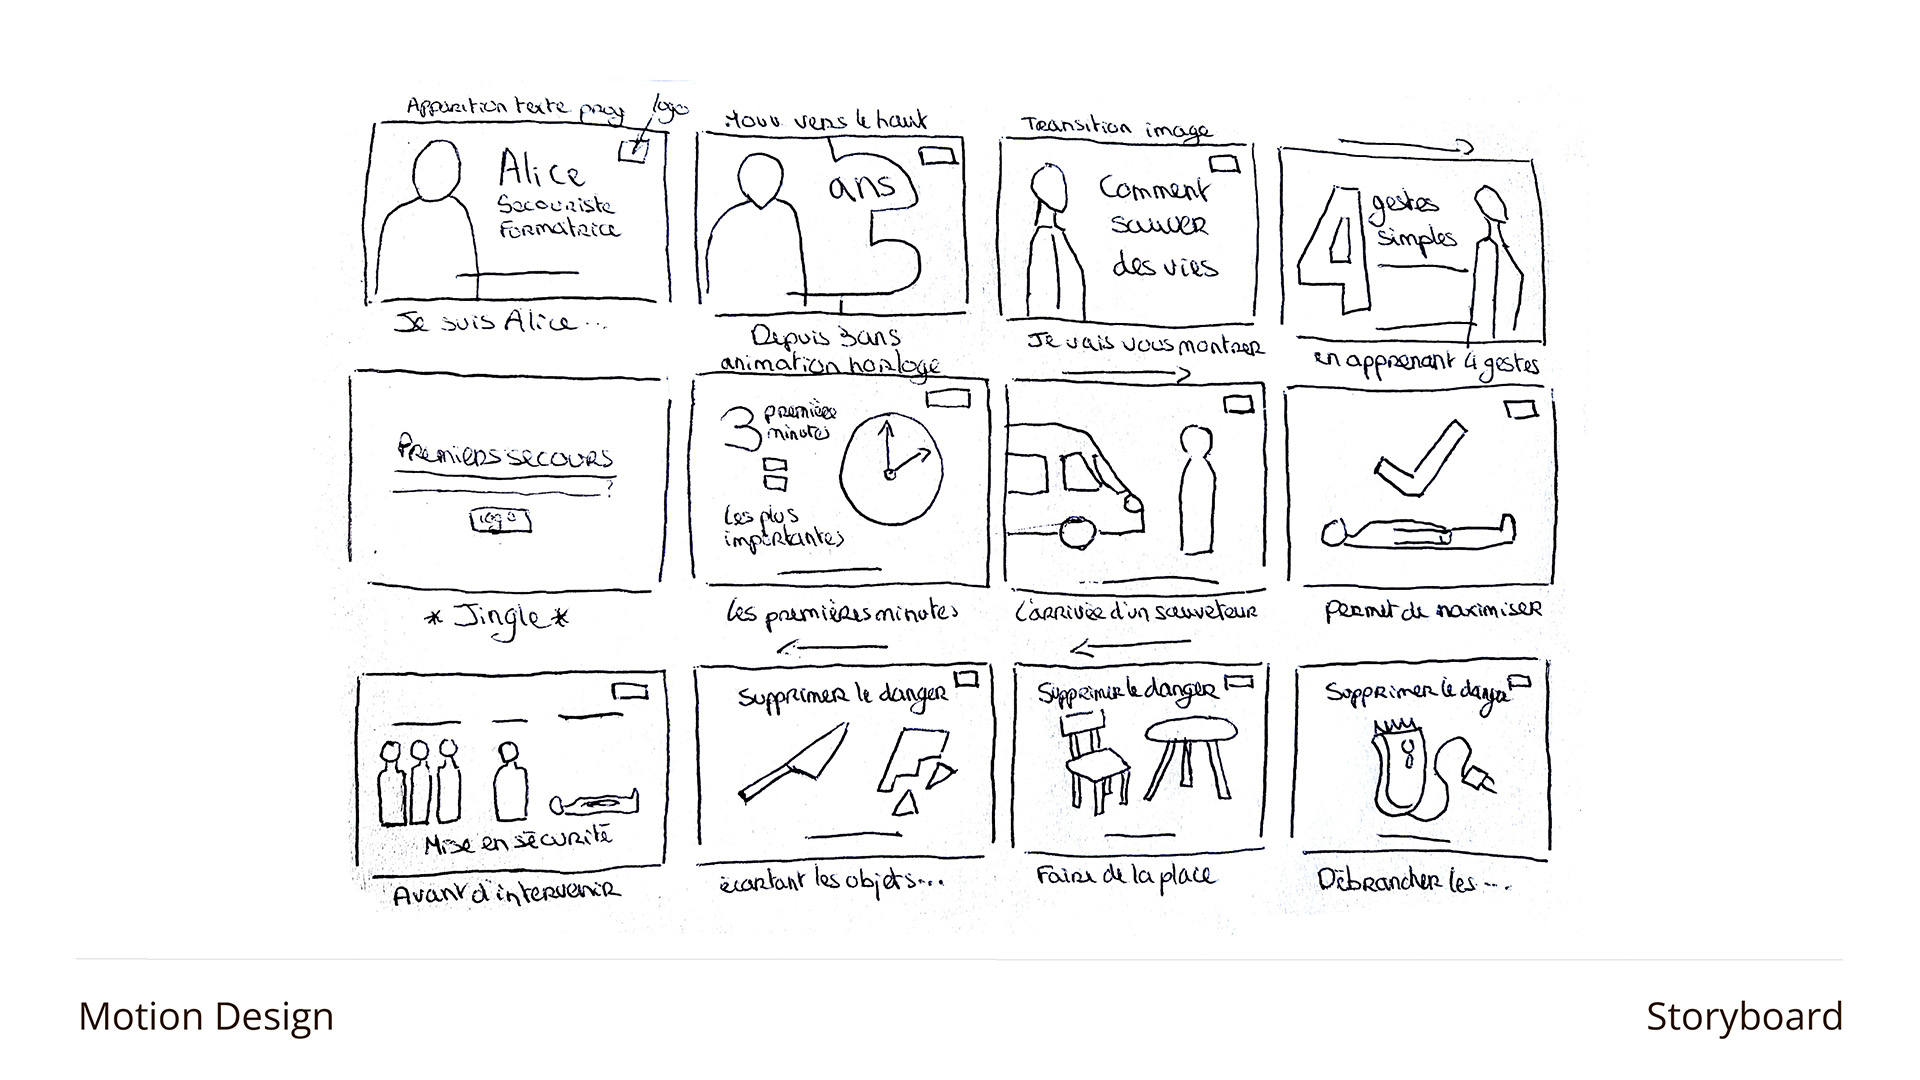 Apparition texte prog logo
Alice
Secouriste
Formatrice
Je suis Alice...
Mouv vers le haut
ans
3
Depuis 3ans
Transition image
Comment
sauver
des vies
Je vais vous montrer
4 gestes
simples
en apprenant 4 gestes
Premiers secours
logo
* Jingle *
animation horloge
3 première
minutes
les plus
importantes
les premières minutes
L'arrivée d'un sauveteur
Permet de maximiser
Mise en sécurité
Avant d'intervenir
Supprimer le danger
écartant les objets...
Supprimer le danger
Faire de la place
Supprimer le danger
Débrancher les ...
Motion Design
Storyboard